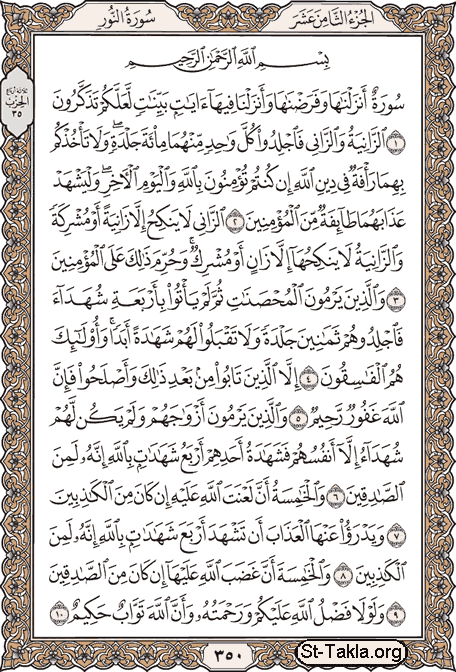 سُورَةُ النُّورِ
الجُزْءُ الثَّامِنَ عَشَرَ
ثلاثة أرباع
الحزب
٣٥
بِسْمِ اللَّهِ الرَّحْمَٰنِ الرَّحِيمِ
سُورَةٌ أَنزَلْنَٰهَا وَفَرَضْنَٰهَا وَأَنزَلْنَا فِيهَآ ءَايَٰتٍۭ بَيِّنَٰتٍ لَّعَلَّكُمْ تَذَكَّرُونَ
١ ٱلزَّانِيَةُ وَٱلزَّانِى فَٱجْلِدُوا۟ كُلَّ وَٰحِدٍ مِّنْهُمَا مِا۟ئَةَ جَلْدَةٍ ۖ وَلَا تَأْخُذْكُم
بِهِمَا رَأْفَةٌ فِى دِينِ ٱللَّهِ إِن كُنتُمْ تُؤْمِنُونَ بِٱللَّهِ وَٱلْيَوْمِ ٱلْءَاخِرِ ۖ وَلْيَشْهَدْ
عَذَابَهُمَا طَآئِفَةٌ مِّنَ ٱلْمُؤْمِنِينَ ٢ ٱلزَّانِى لَا يَنكِحُ إِلَّا زَانِيَةً أَوْ مُشْرِكَةً
وَٱلزَّانِيَةُ لَا يَنكِحُهَآ إِلَّا زَانٍ أَوْ مُشْرِكٌ ۚ وَحُرِّمَ ذَٰلِكَ عَلَى ٱلْمُؤْمِنِينَ
٣ وَٱلَّذِينَ يَرْمُونَ ٱلْمُحْصَنَٰتِ ثُمَّ لَمْ يَأْتُوا۟ بِأَرْبَعَةِ شُهَدَآءَ
فَٱجْلِدُوهُمْ ثَمَٰنِينَ جَلْدَةً وَلَا تَقْبَلُوا۟ لَهُمْ شَهَٰدَةً أَبَدًا ۚ وَأُو۟لَٰٓئِكَ
هُمُ ٱلْفَٰسِقُونَ ٤ إِلَّا ٱلَّذِينَ تَابُوا۟ مِنۢ بَعْدِ ذَٰلِكَ وَأَصْلَحُوا۟ فَإِنَّ
ٱللَّهَ غَفُورٌ رَّحِيمٌ ٥ وَٱلَّذِينَ يَرْمُونَ أَزْوَٰجَهُمْ وَلَمْ يَكُن لَّهُمْ
شُهَدَآءُ إِلَّآ أَنفُسُهُمْ فَشَهَٰدَةُ أَحَدِهِمْ أَرْبَعُ شَهَٰدَٰتٍۭ بِٱللَّهِ إِنَّهُۥ لَمِنَ
ٱلصَّٰدِقِينَ ٦ وَٱلْخَٰمِسَةُ أَنَّ لَعْنَتَ ٱللَّهِ عَلَيْهِ إِن كَانَ مِنَ ٱلْكَٰذِبِينَ
٧ وَيَدْرَؤُا۟ عَنْهَا ٱلْعَذَابَ أَن تَشْهَدَ أَرْبَعَ شَهَٰدَٰتٍۭ بِٱللَّهِ إِنَّهُۥ لَمِنَ
ٱلْكَٰذِبِينَ ٨ وَٱلْخَٰمِسَةَ أَنَّ غَضَبَ ٱللَّهِ عَلَيْهَآ إِن كَانَ مِنَ ٱلصَّٰدِقِينَ
٩ وَلَوْلَا فَضْلُ ٱللَّهِ عَلَيْكُمْ وَرَحْمَتُهُۥ وَأَنَّ ٱللَّهَ تَوَّابٌ حَكِيمٌ ١٠
٣٥٠
St-Takla.org